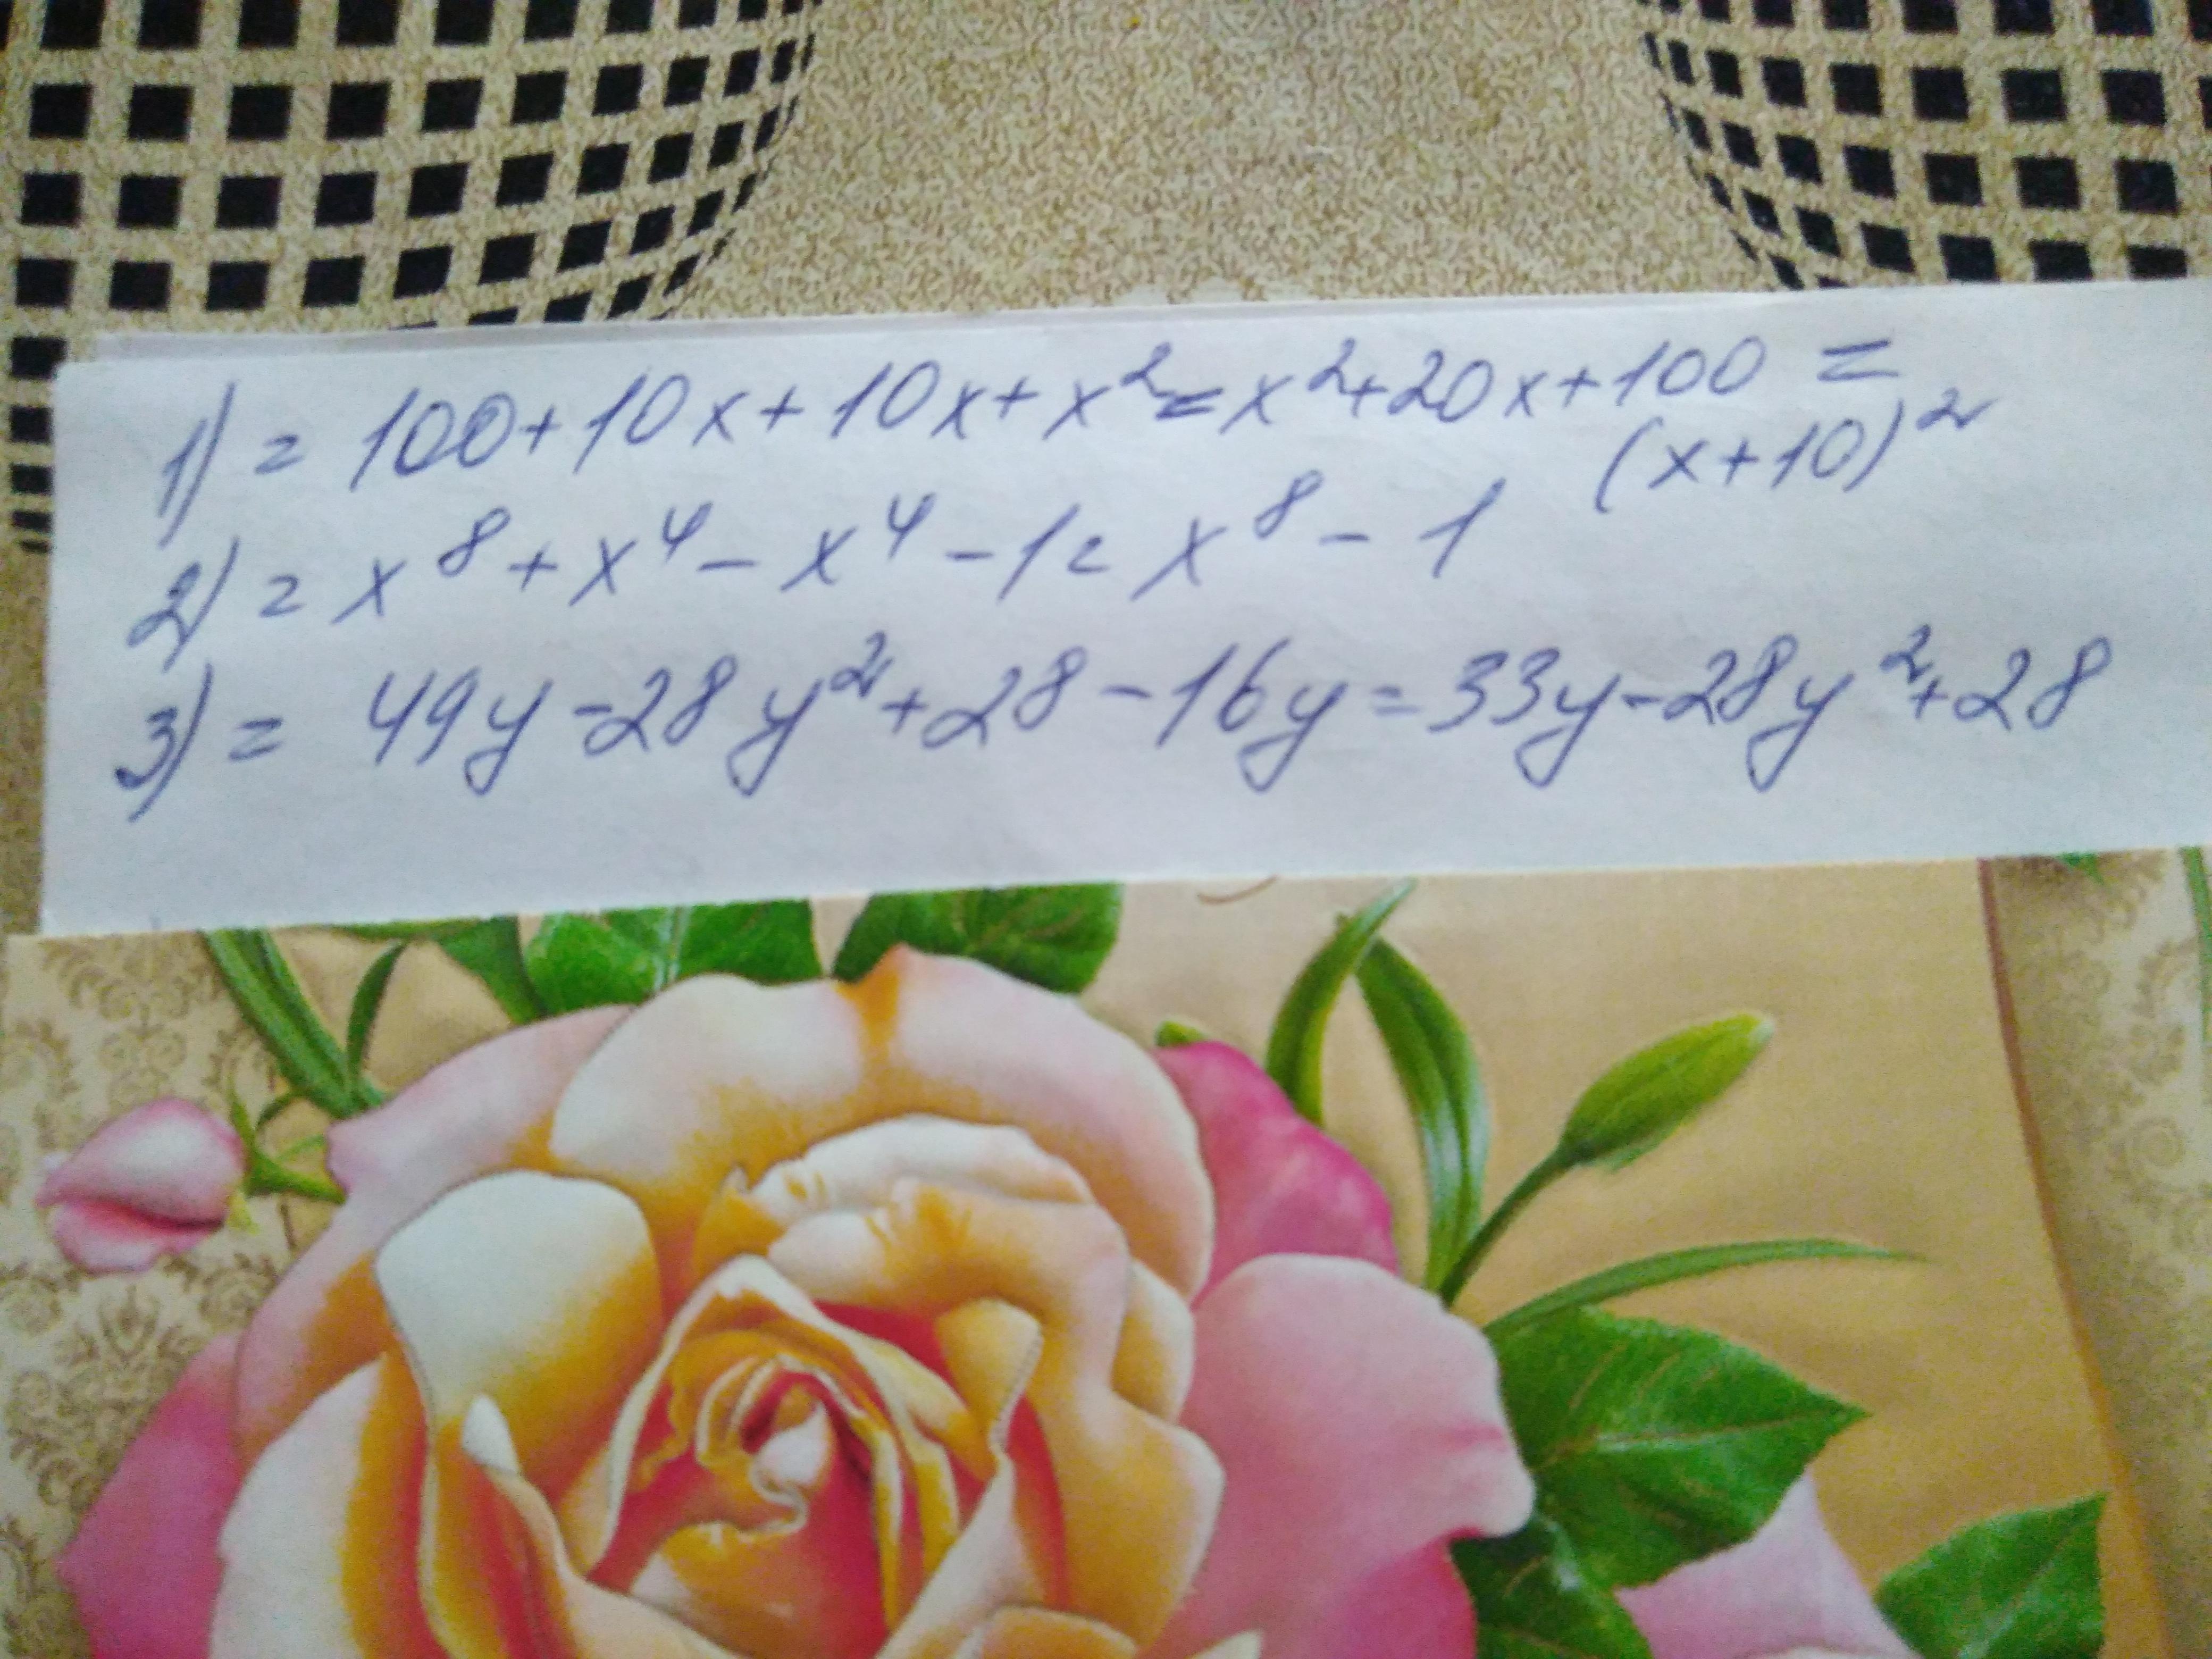 1) = 100+10x+10x+x²=x²+20x+100 =
(x+10)²
2) = x⁸+x⁴-x⁴-1= x⁸-1
3) = 49y-28y²+28-16y=33y-28y²+28